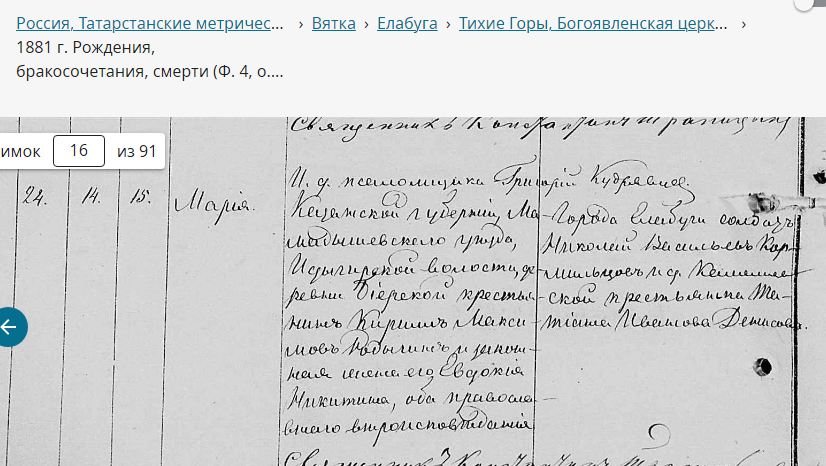 Россия, Татарстанские метричес... › Вятка › Елабуга › Тихие Горы, Богоявленская церк... ›
1881 г. Рождения,
бракосочетания, смерти (Ф. 4, о....
Священникъ Константинъ
имок 16 из 91
И. д. псаломщика Григорій Кудрявцев.
24. 14. 15. Марія.
Казанской губерніи, Ма-
мадышевскаго уѣзда,
волости, де-
ревни крестья-
нинъ Кириллъ Макси-
мовъ и закон-
ная жена его Евдокія
Никитина, оба православ-
наго вѣроисповѣданія
Города Елабуги солдатъ
Николай Васильевъ Кор-
мильцовъ и д.
ской крестьянка Та-
тіана Иванова Денисова.
Священникъ